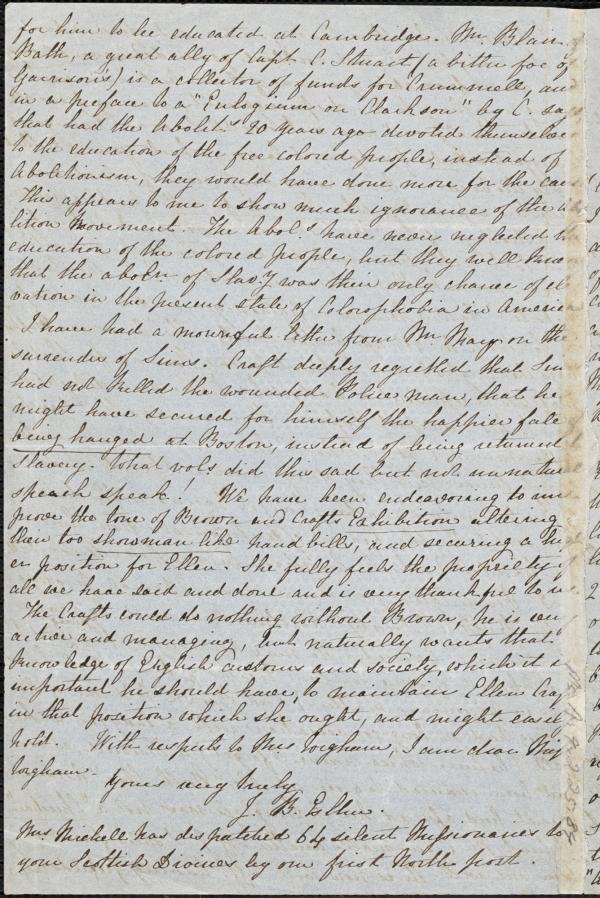 for him to be educated at Cambridge. Mr. Blair, of
Bath, a great ally of Capt C. Stuart (a bitter foe of
Garrison's) is a collector of funds for Crummell, and
in a preface to a "Eulogium on Clarkson" by C. says
that had the Abolit.s 20 years ago devoted themselve
to the education of the free colored people, instead of
Abolitionism, they would have done more for the caus
This appears to me to show much ignorance of the Abo
lition Movement. The Abol.s have never neglected th
education of the colored people, but they well knew
that the abol.n of Slav.y was their only chance of el
vation in the present state of Colorophobia in America
I have had a mournful letter from Mr May on the
surrender of Sims. Craft deeply regretted that Sim
had not killed the wounded Police man, that he
might have secured for himself the happier fate
being hanged at Boston, instead of being returned t
Slavery. What vols did this sad but not unnatural
speech speak! We have been endeavoring to im
prove the tone of Brown and Crafts Exhibition altering
their too showman like hand bills, and securing a
er position for Ellen. She fully feels the propriety of
all we have said and done and is very thankful to us.
The Crafts could do nothing without Brown, he is very
active and managing, but naturally wants that
knowledge of English customs and society, which it s
important he should have, to maintain Ellen Craf
in that position which she ought, and might easil
hold. With respects to Mrs Wigham, I am dear Miss
Wigham.
Yours very truly
J. B. Estlin.
Mrs Michell has despatched 64 silent Missionaries to
your Scottish Divines by our first North post.